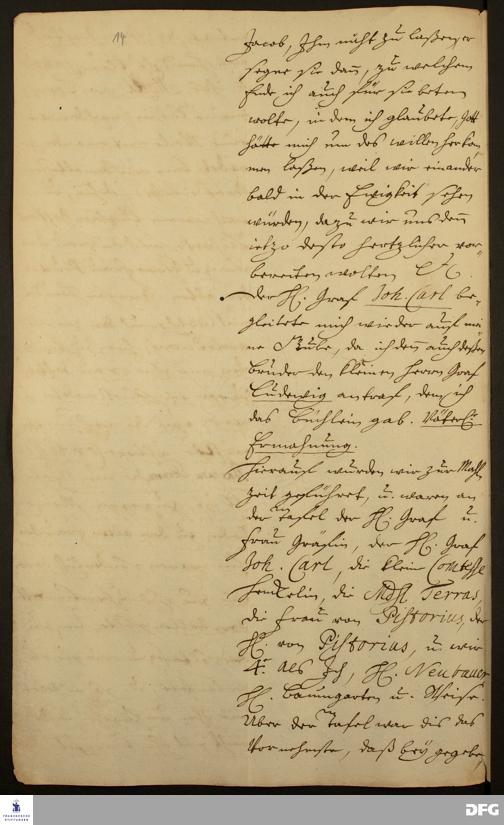 14
Jacob, Ihn nicht zu laßen, er
segne sie dann, zu welchem
Ende ich auch für sie beten
wolte, indem ich glaubete, Gott
hätte mich um des willen herkom
men laßen, weil wir einander
bald in der Ewigkeit sehen
würden, dazu wir uns denn
ietzo desto hertzlicher vor-
bereiten wolten
der H. Graf Joh. Carl be-
gleitete mich wieder auf mei
ne Stube, da ich denn auch deßen
Bruder den kleinen Herrn Graf
Ludewig antraf, dem ich
das Büchlein gab. Väterl.
Ermahnung.
Hierauf wurden wir zur Mahl
zeit geführet, u. waren an
der Tafel der H. Graf u.
Frau Gräfin, der H. Graf
Joh. Carl, die kleine Comtesse
Henckelin, die Mdsl. Terras,
die Frau von Pistorius, der
H. von Pistorius, u. wir
4. als Ich, H. Neubauer
H. Baumgarten u. Weise.
Uber der Tafel war dis das
Vornehmste, daß bey gegebe
FRANCKESCHE
STIFTUNGEN
DFG